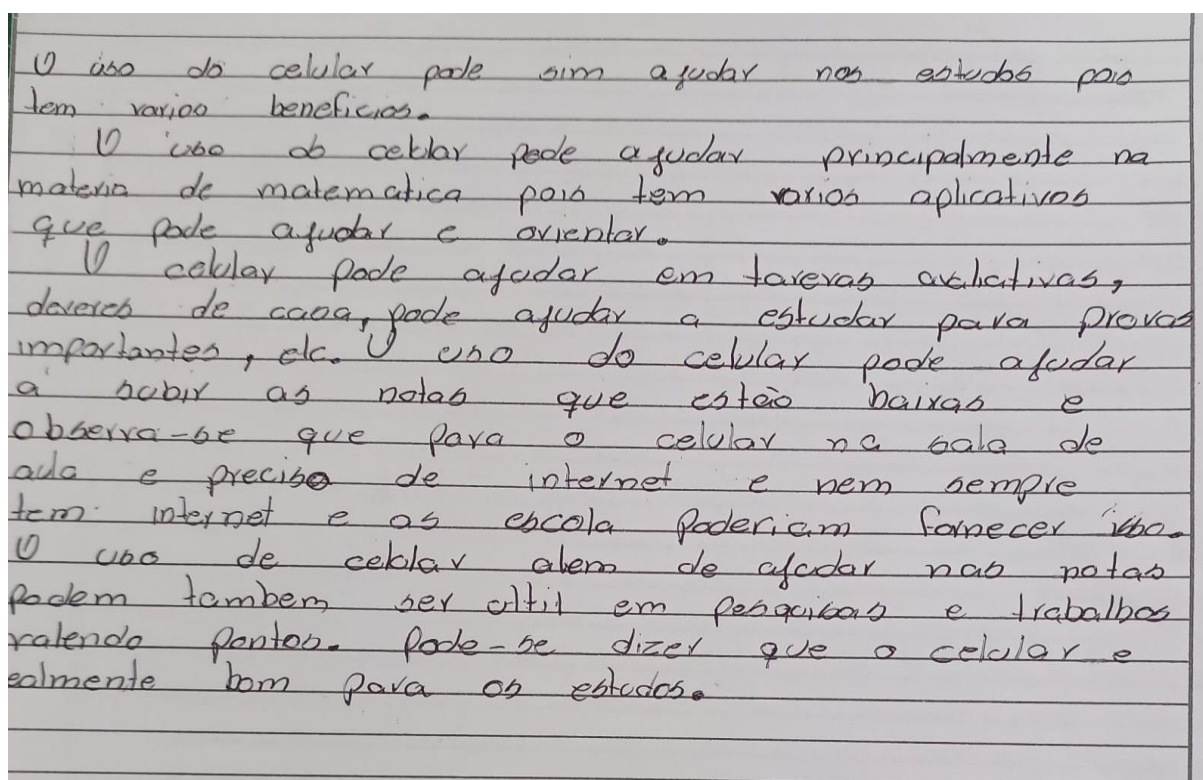 O uso do celular pode sim ajudar nos estudos pois
tem varios beneficios.
O uso do celular pode ajudar principalmente na
materia de matematica pois tem varios aplicativos
que pode ajudar e orientar.
O celular pode ajudar em tarevas avaliativas,
deveres de casa, pode ajudar a estudar para provas
importantes, etc. O uso do celular pode ajudar
a subir as notas que estão baixas e
observa-se que para o celular na sala de
aula e preciso de internet e nem sempre
tem internet e as escola poderiam fornecer isso.
O uso de celular alem de ajudar nas notas
podem tambem ser ultil em pesquisas e trabalhos
valendo pontos. Pode-se dizer que o celular e
ealmente bom para os estudos.